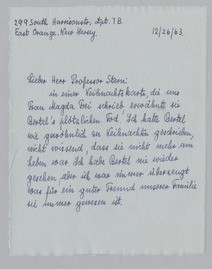 299 South Harrison St., Apt. 7B.
East Orange, New Jersey
12/26/63.
Lieber Herr Professor Stern:
in einer Weihnachtskarte, die uns
Frau Magda Pei schrieb erwähnte sie
Bertel's plötzlichen Tod. Ich hatte Bertel
wie gewöhnlich zu Weihnachten geschrieben,
nicht wissend, dass sie nicht mehr am
Leben war. Ich habe Bertel nie wieder
gesehen aber ich war immer überzeugt
was für ein guter Freund unserer Familie
sie immer gewesen ist.